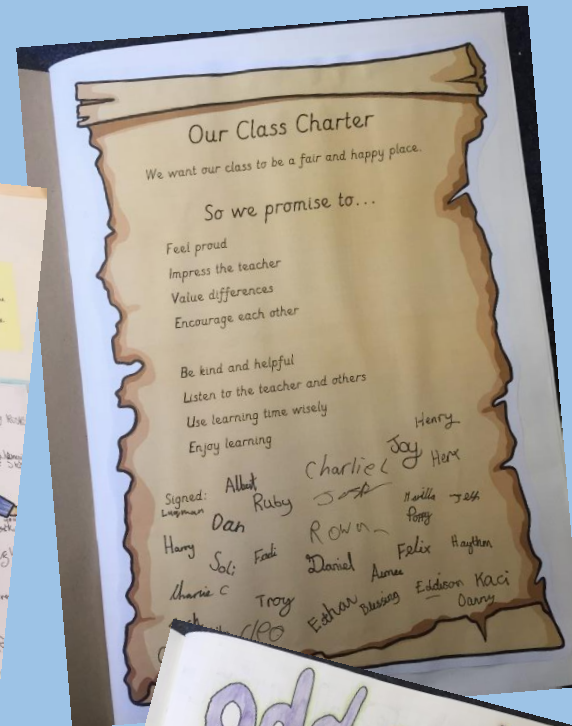 Our Class Charter
We want our class to be a fair and happy place.
So we promise to...
Feel proud
Impress the teacher
Value differences
Encourage each other
Be kind and helpful
Listen to the teacher and others
Use learning time wisely
Enjoy learning
Henry
Joy
Charlie L
Signed:
Albert
Ruby
Dan
Poppy
Harry
Fadi
Daniel
Felix
Haythem
Aimee
Charlie C
Troy
Blessing
Eddison
Kaci
Danny
Cleo
Odd